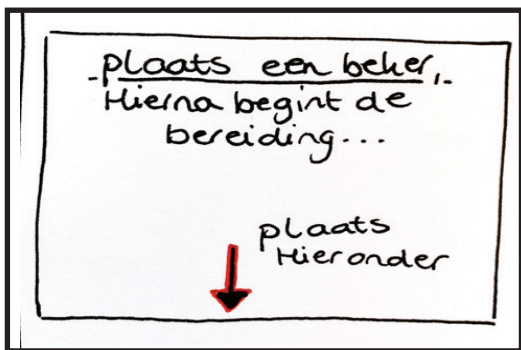 plaats een beker,
Hierna begint de
bereiding...
plaats
Hieronder